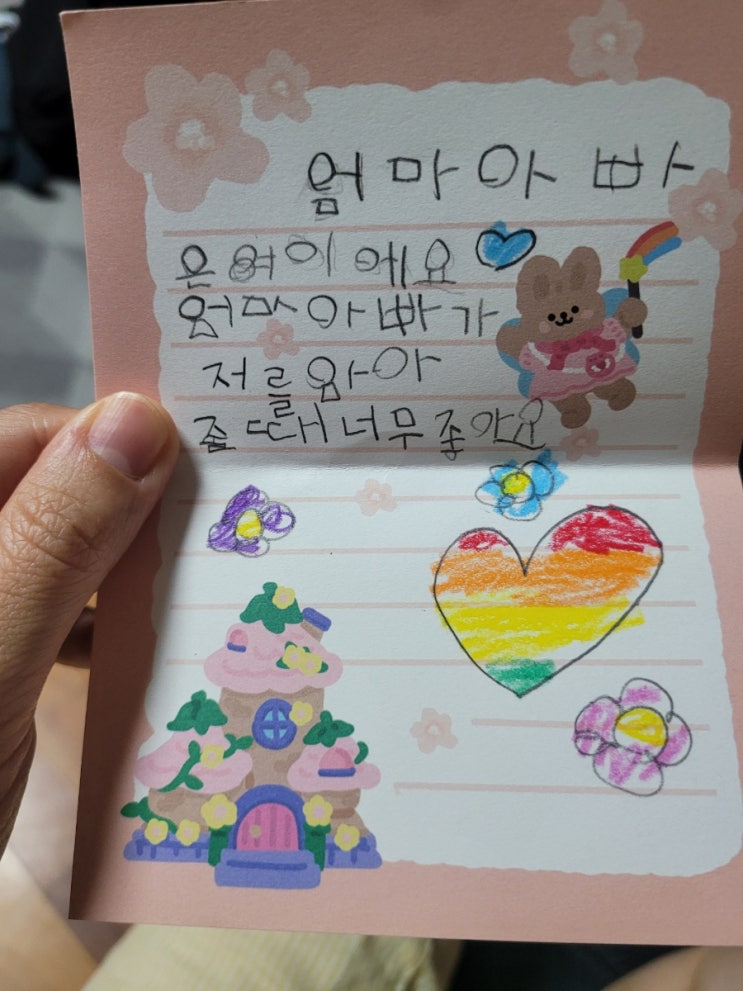 엄마아빠
은여이에요
엄마아빠가
저를앞아
줄때너무좋아요